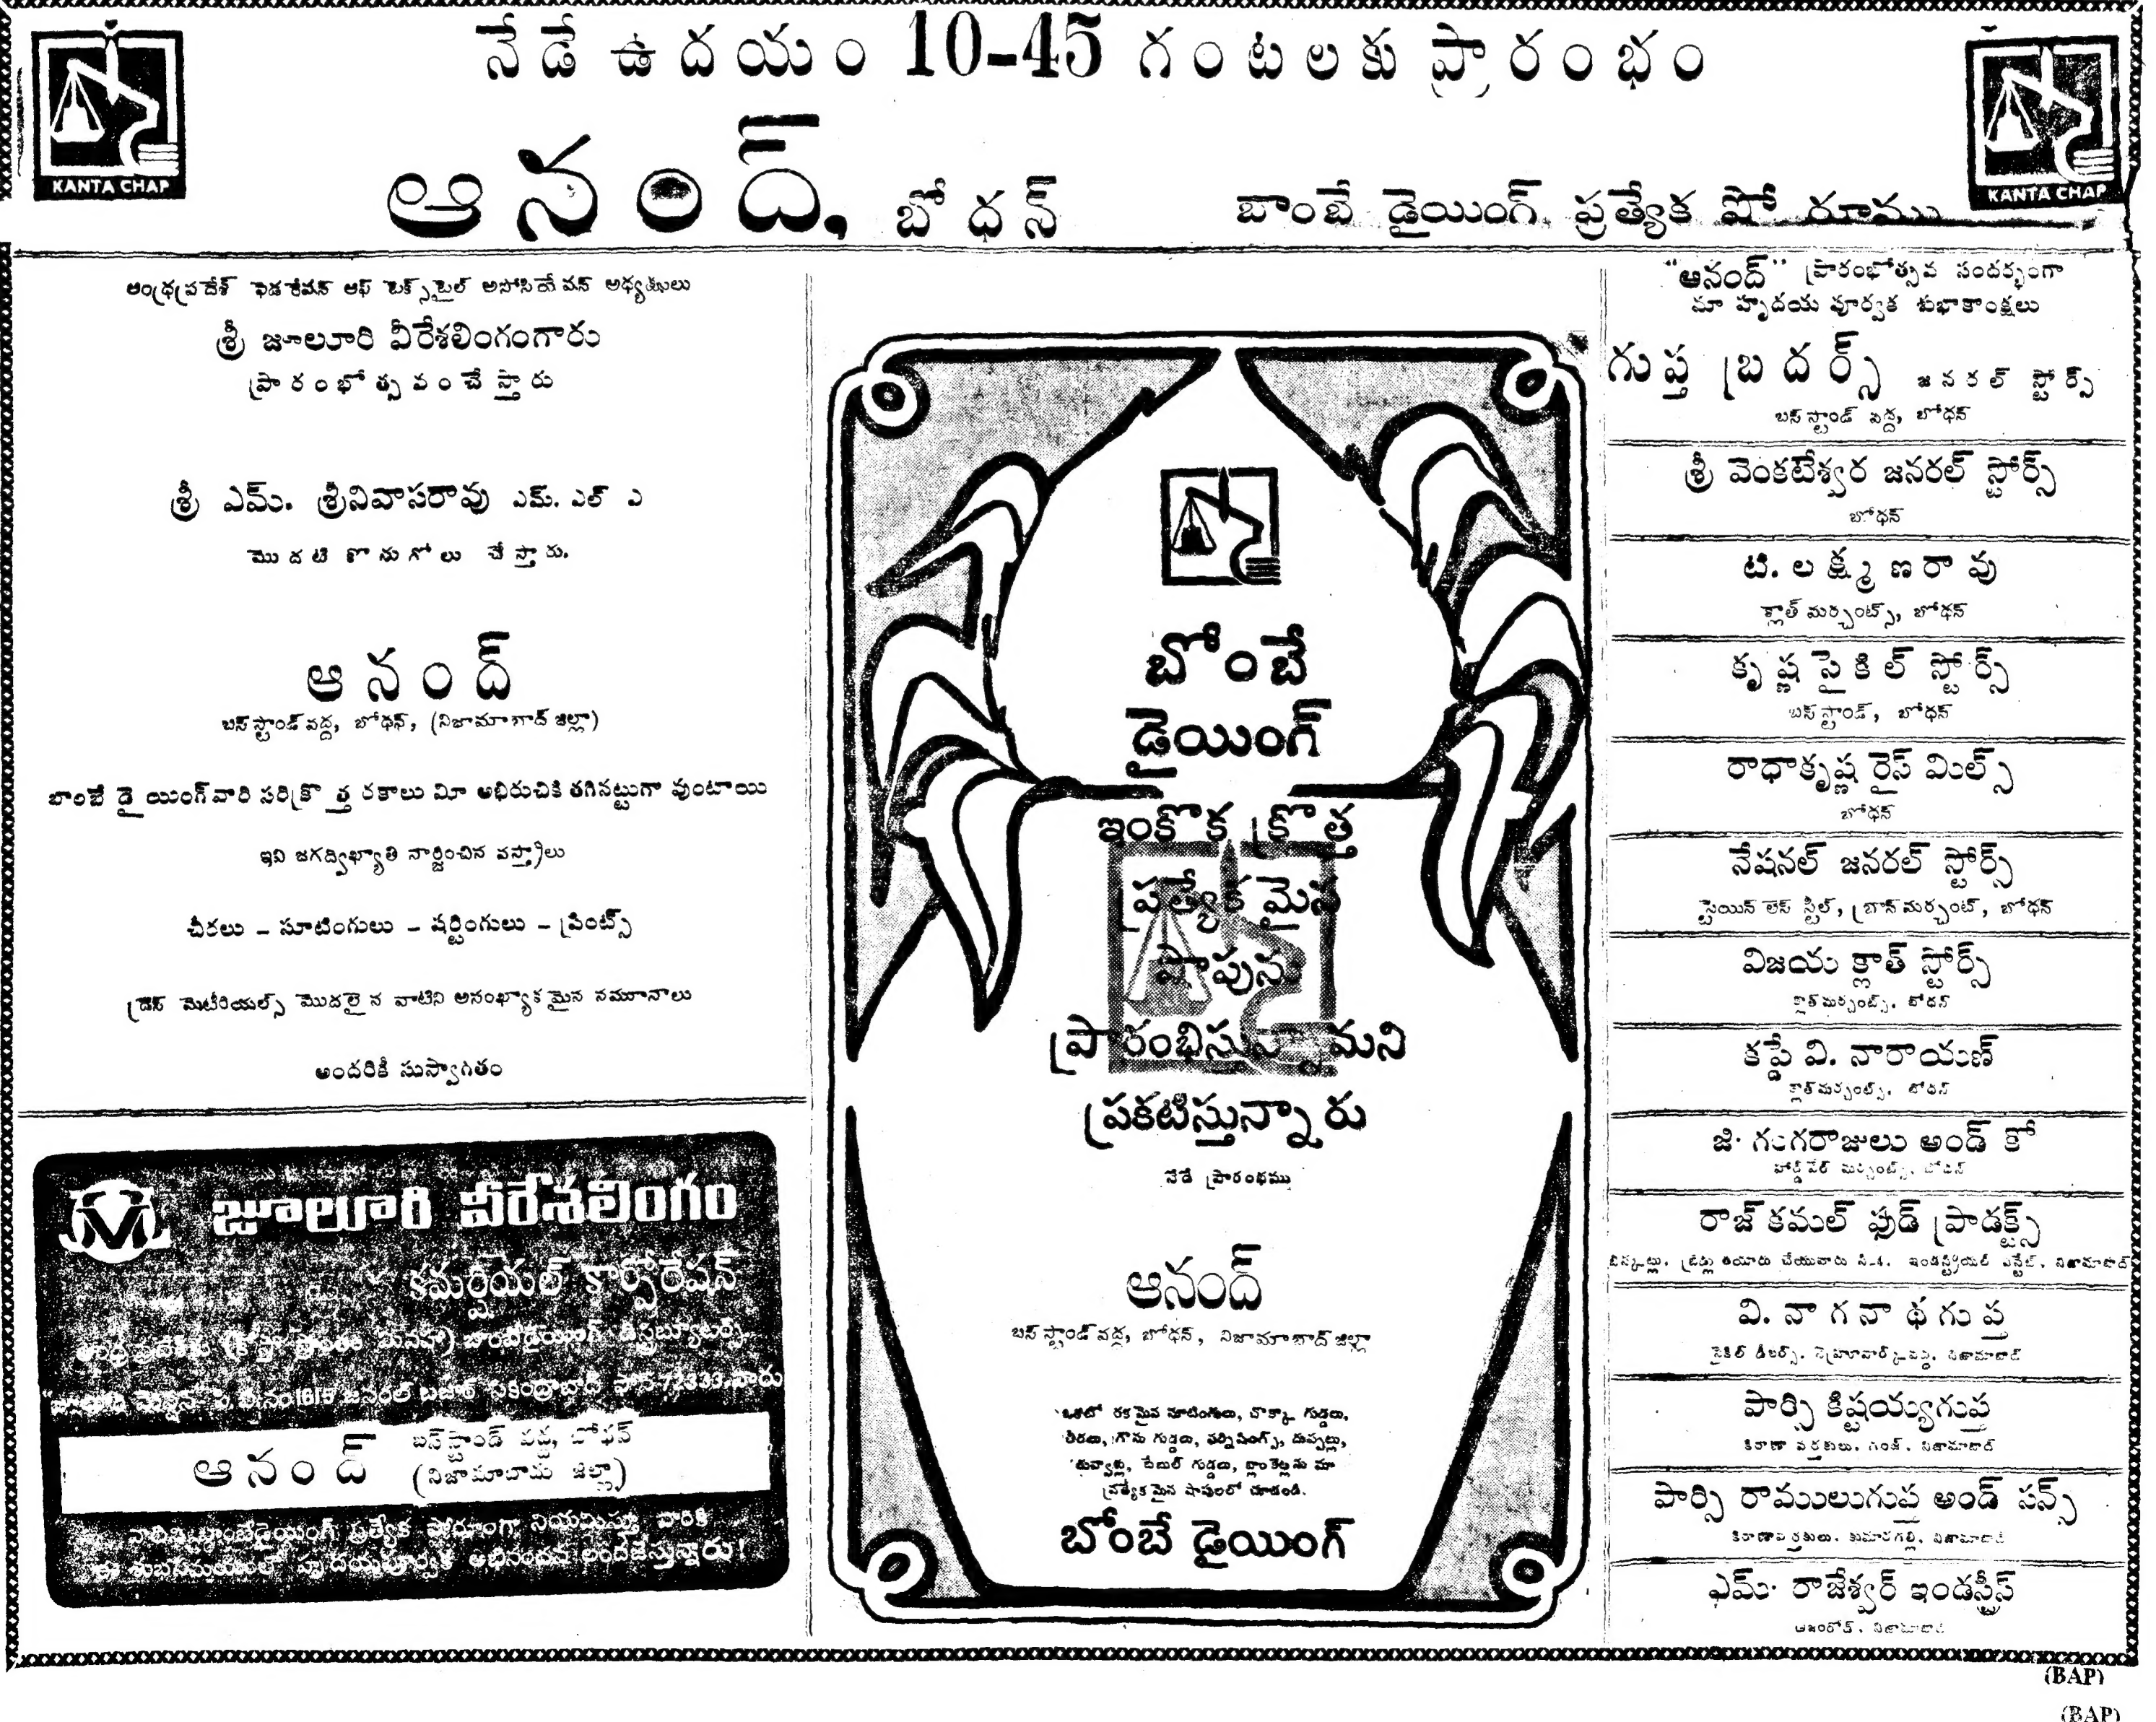 నేడే ఉదయం 10-45 గంటలకు ప్రారంభం
KANTA CHAP
KANTA CHAP
ఆనంద్, బోధన్ బాంబే డైయింగ్ ప్రత్యేక షో రూము
ఆంధ్రప్రదేశ్ ఫెడరేషన్ ఆఫ్ టెక్స్‌టైల్ అసోసియేషన్ అధ్యక్షులు
శ్రీ జూలూరి వీరేశలింగంగారు
ప్రారంభోత్సవంచేస్తారు
శ్రీ ఎమ్. శ్రీనివాసరావు ఎమ్. ఎల్ ఎ
మొదటి కొనుగోలు చేస్తారు.
ఆనంద్
బస్‌స్టాండ్ వద్ద, బోధన్, (నిజామాబాద్ జిల్లా)
బాంబే డైయింగ్ వారి సరిక్రొత్త రకాలు మీ అభిరుచికి తగినట్టుగా వుంటాయి
ఇవి జగద్విఖ్యాతి నార్జించిన వస్త్రాలు
చీరలు – సూటింగులు – షర్టింగులు – ప్రింట్స్
డ్రెస్ మెటీరియల్స్ మొదలైన వాటిని అసంఖ్యాకమైన నమూనాలు
అందరికీ సుస్వాగతం
జూలూరి వీరేశలింగం
కమర్షియల్ కార్పోరేషన్
జనరల్ బజార్ సికింద్రాబాద్ ఫోన్ 72333 వారు
ఆనంద్ బస్‌స్టాండ్ వద్ద, బోధన్
(నిజామాబాదు జిల్లా)
వారిని బాంబేడైయింగ్ ప్రత్యేక షోరూంగా నియమిస్తూ వారికి
ఈ శుభసమయంలో హృదయపూర్వక అభినందన లందజేస్తున్నారు!
బోంబే
డైయింగ్
ఇంకొక క్రొత్త
ప్రత్యేకమైన
షాపును
ప్రారంభిస్తున్నామని
ప్రకటిస్తున్నారు
నేడే ప్రారంభము
ఆనంద్
బస్‌స్టాండ్ వద్ద, బోధన్, నిజామాబాద్ జిల్లా
రకమైన సూటింగులు, చొక్కా గుడ్డలు,
చీరలు, గౌను గుడ్డలు, ఫర్నిషింగ్స్, దుప్పట్లు,
తువ్వాళ్లు, టేబుల్ గుడ్డలు, బ్లాంకెట్లను మా
ప్రత్యేకమైన షాపులలో చూడండి.
బోంబే డైయింగ్
"ఆనంద్" ప్రారంభోత్సవ సందర్భంగా
మా హృదయ పూర్వక శుభాకాంక్షలు
గుప్త బ్రదర్స్ జనరల్ స్టోర్స్
బస్‌స్టాండ్ వద్ద, బోధన్
శ్రీ వెంకటేశ్వర జనరల్ స్టోర్స్
బోధన్
టి. లక్ష్మణరావు
క్లాత్ మర్చంట్స్, బోధన్
కృష్ణ సైకిల్ స్టోర్స్
బస్‌స్టాండ్, బోధన్
రాధాకృష్ణ రైస్ మిల్స్
బోధన్
నేషనల్ జనరల్ స్టోర్స్
స్టెయిన్ లెస్ స్టీల్, బ్రాస్ మర్చంట్, బోధన్
విజయ క్లాత్ స్టోర్స్
క్లాత్ మర్చంట్స్, బోధన్
కప్డే వి. నారాయణ్
క్లాత్ మర్చంట్స్, బోధన్
జి. గంగరాజులు అండ్ కో
హార్డ్‌వేర్ మర్చంట్స్, బోధన్
రాజ్ కమల్ ఫుడ్ ప్రొడక్ట్స్
బిస్కట్లు, బ్రెడ్లు తయారు చేయువారు సి-4, ఇండస్ట్రియల్ ఎస్టేట్, నిజామాబాద్
వి. నాగనాథగుప్త
సైకిల్ డీలర్స్, నెహ్రూపార్క్ వద్ద, నిజామాబాద్
పార్సి కిష్టయ్యగుప్త
కిరాణా వర్తకులు, గంజ్, నిజామాబాద్
పార్సి రాములుగుప్త అండ్ సన్స్
కిరాణావర్తకులు, కుమార్‌గల్లి, నిజామాబాద్
ఎమ్. రాజేశ్వర్ ఇండస్ట్రీస్
నిజామాబాద్
(BAP)
(BAP)